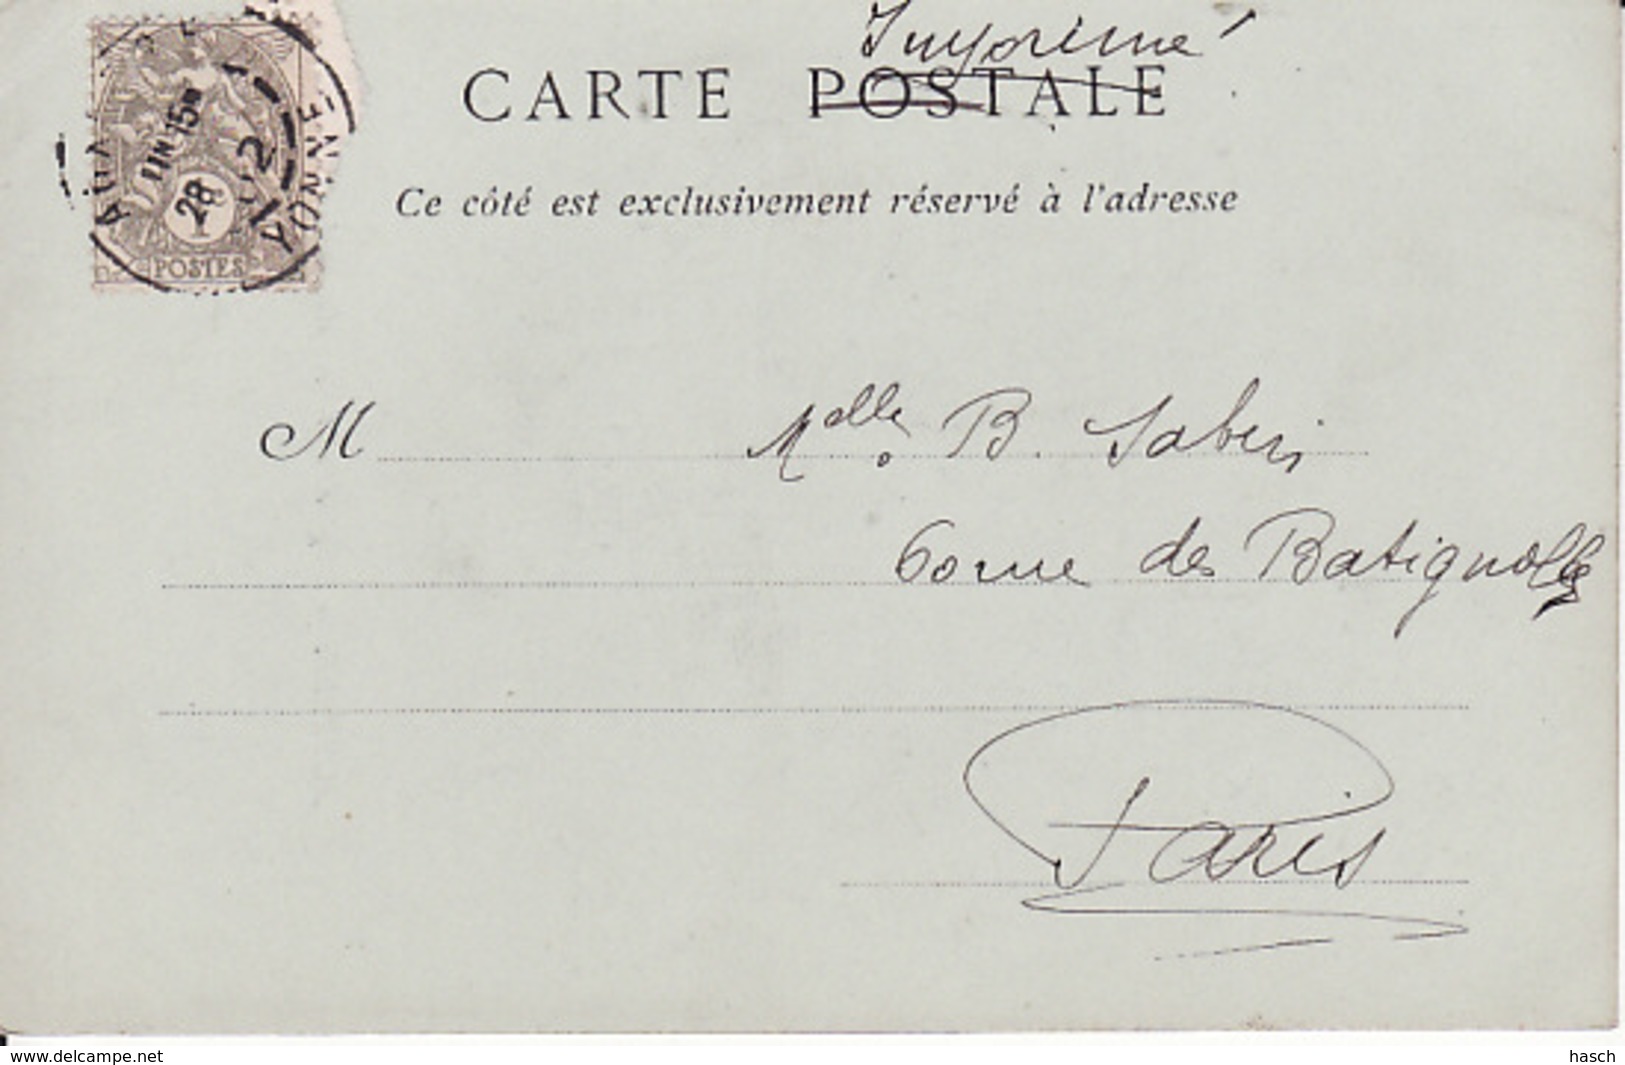 Imprimé
CARTE POSTALE
Ce côté est exclusivement réservé à l'adresse
15
28
02
YONNE
1
POSTES
M Melle. B. Saberi
60 rue des Batignolles
Paris
www.delcampe.net
hasch